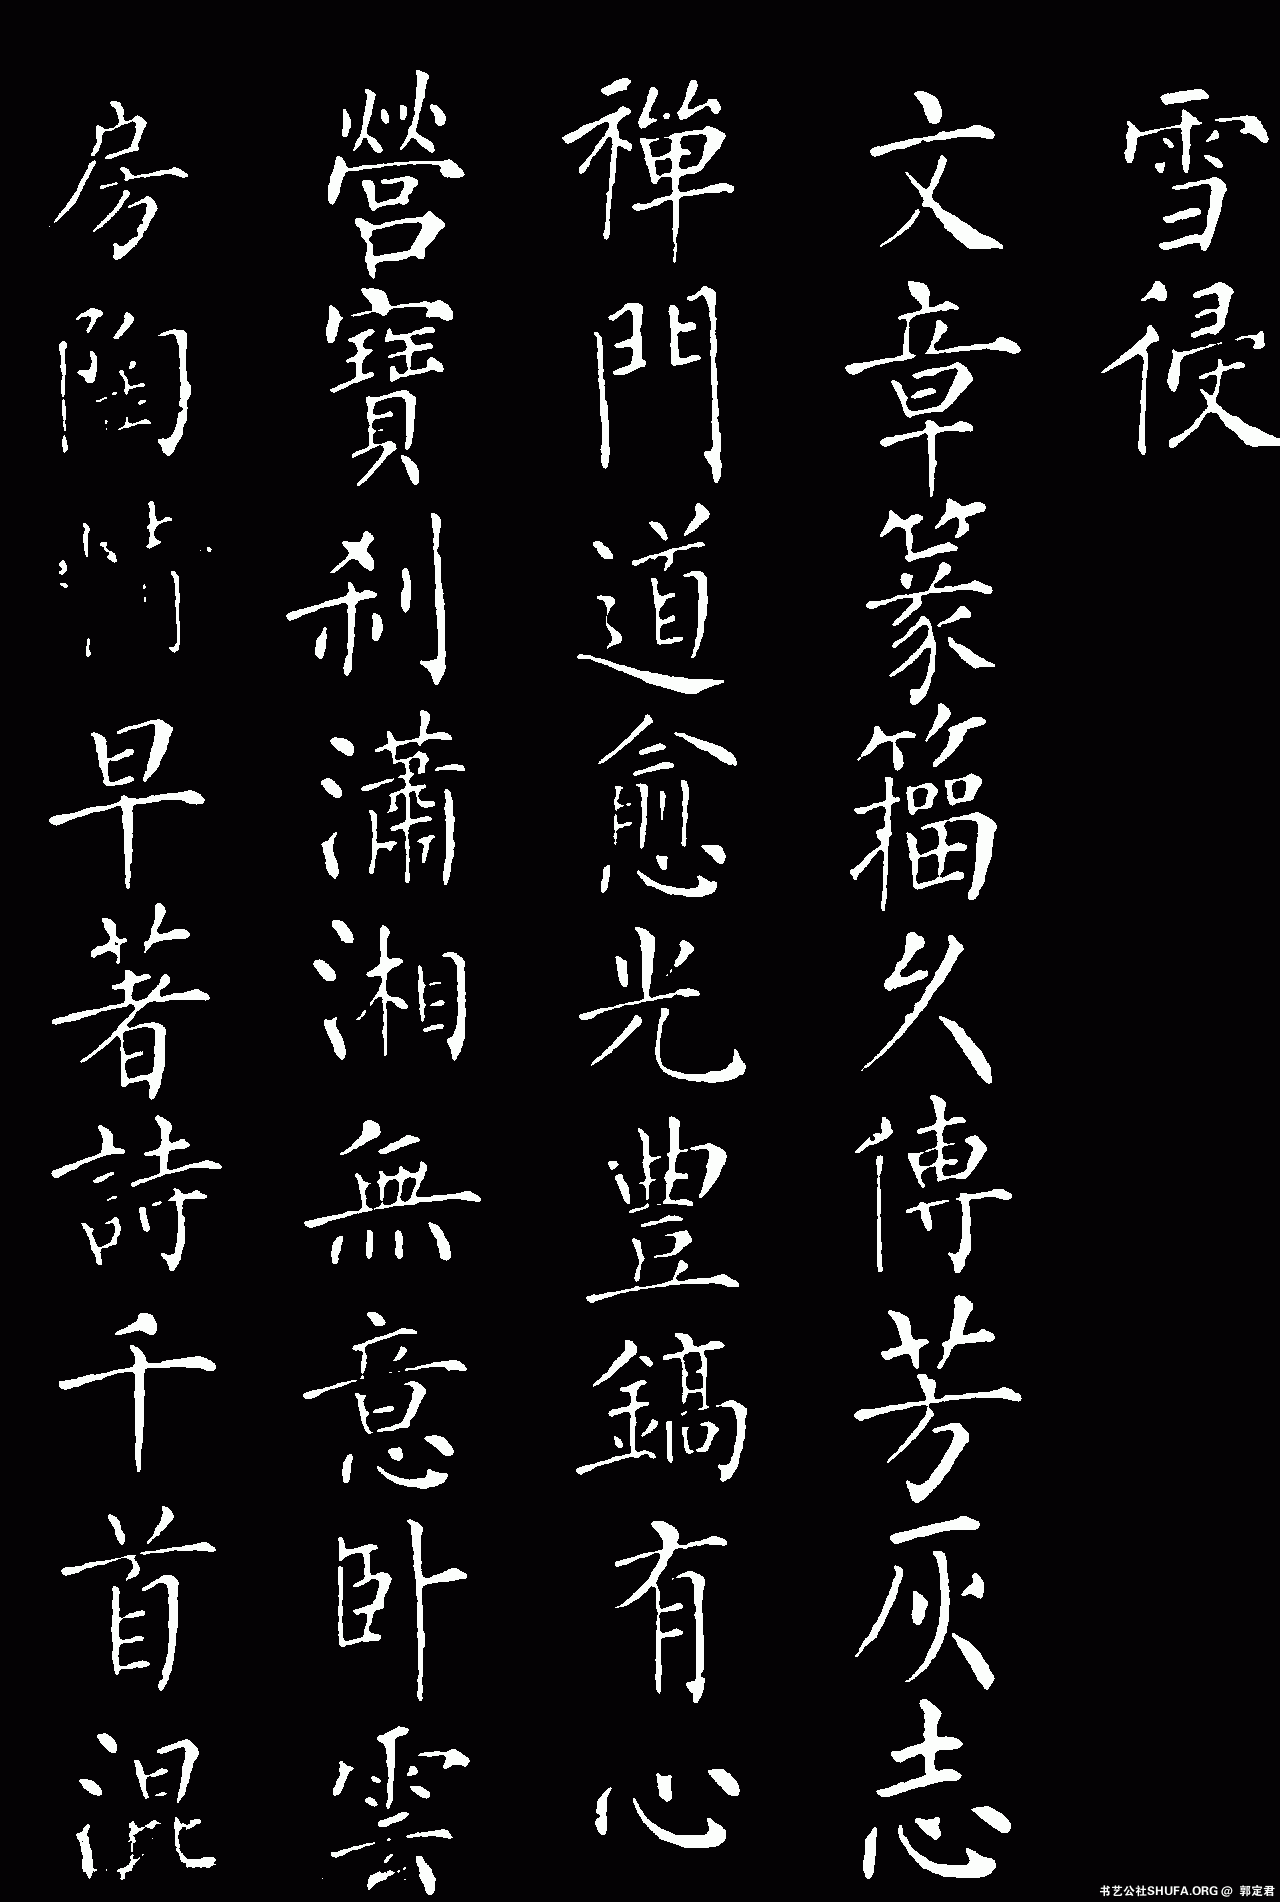 雪侵
文章篆籀久傳芳灰志
禪門道愈光豐鎬有心
營寶剎瀟湘無意卧雲
房陶情早著詩千首混
书艺公社SHUFA.ORG @ 郭定君